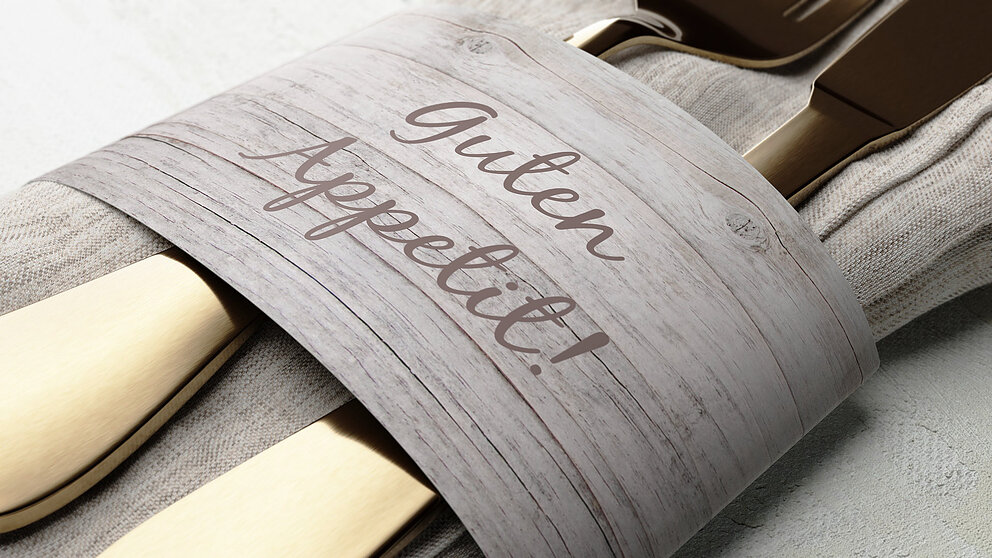 Guten
Appetit!